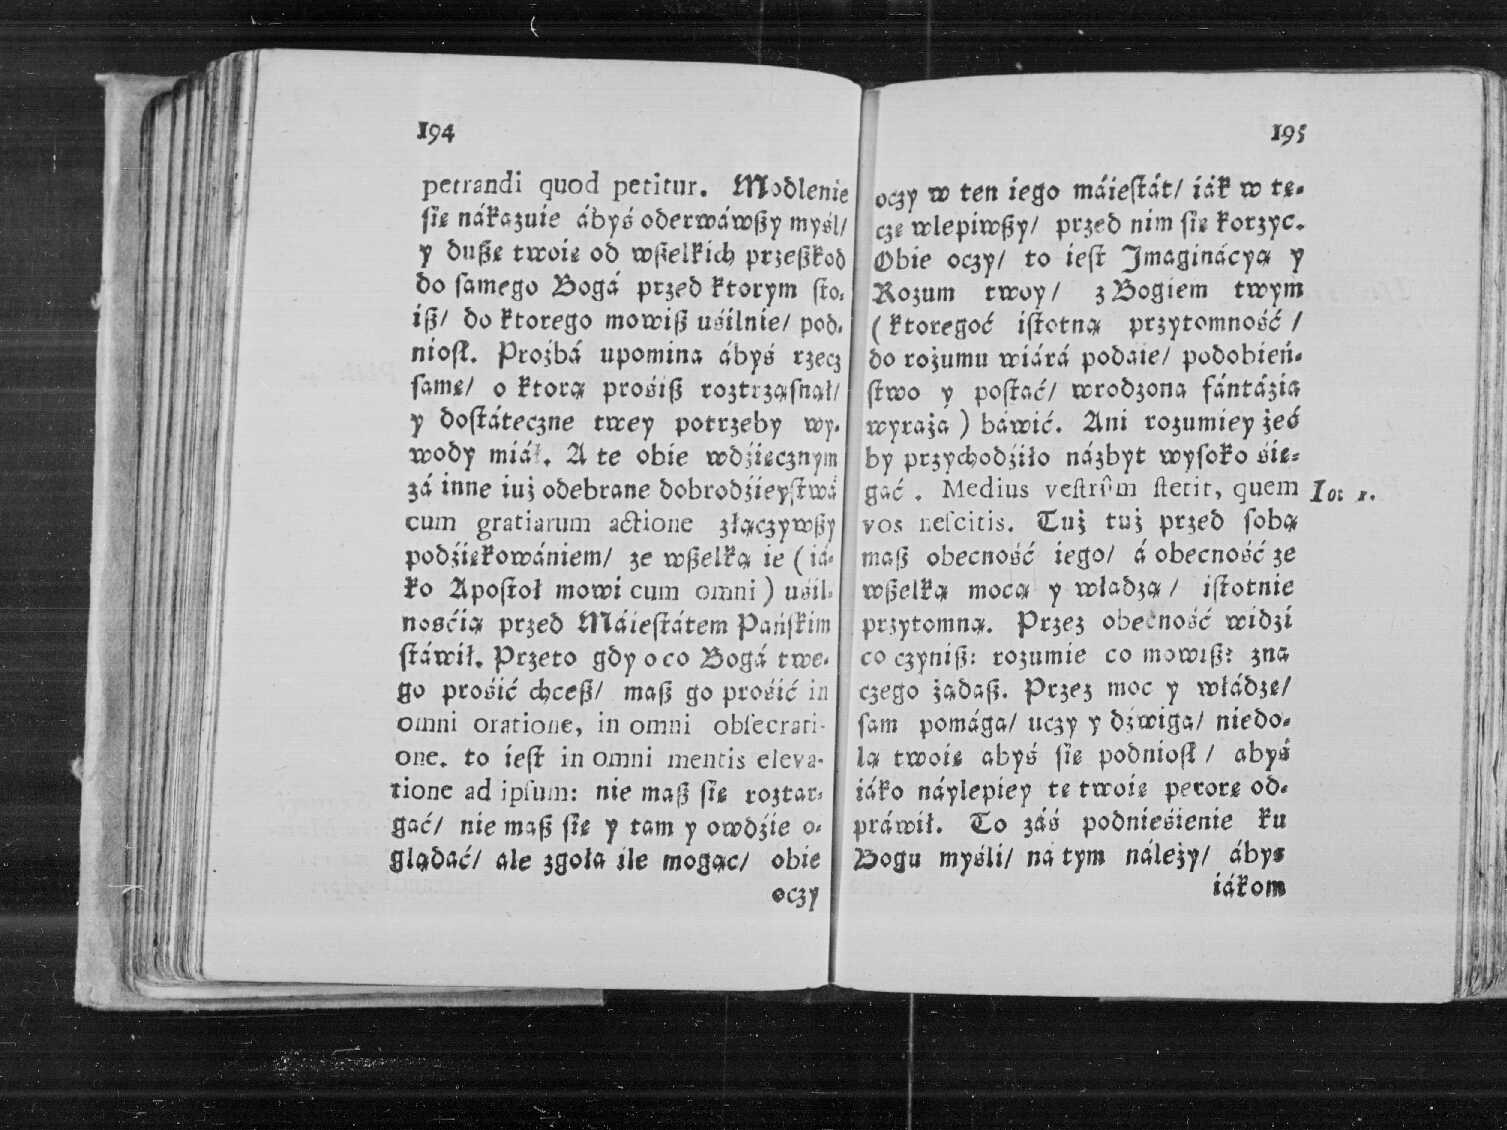 194
petrandi quod petitur. Modlenie
ſię nákazuie ábyś oderwáwßy myśl/
y dußę twoię od wßelkich przeßkod
do ſamego Bogá przed ktorym ſto-
iß/ do ktorego mowiß uśilnie/ pod-
nioſł. Proźbá upomina ábyś rzecz
ſamę/ o ktorą prośiß roztrząſnął/
y doſtáteczne twey potrzeby wy-
wody miáł. A te obie wdźięcznym
zá inne iuż odebrane dobrodźieyſtwá
cum gratiarum actione złączywßy
podźiękowániem/ ze wßelką ie (iá-
ko Apoſtoł mowi cum omni) uśil-
nośćią przed Máieſtátem Pańſkim
ſtáwił. Przeto gdy o co Bogá twe-
go prośić chceß/ maß go prośić in
omni oratione, in omni obſecrati-
one. to ieſt in omni mentis eleva-
tione ad ipſum: nie maß ſię roztar-
gać/ nie maß ſię y tam y owdźie o-
glądać/ ale zgoła ile mogąc/ obie
oczy
195
oczy w ten iego máieſtát/ iák w tę-
czę wlepiwßy/ przed nim ſię korzyc.
Obie oczy/ to ieſt Imaginácyą y
Rozum twoy/ z Bogiem twym
(ktoregoć iſtotną przytomność/
do rozumu wiárá podaie/ podobień-
ſtwo y poſtać/ wrodzona fántázia
wyraża) báwić. Ani rozumiey żeć
by przychodźiło názbyt wyſoko śię-
gáć. Medius veſtrûm ſtetit, quem
Io: 1.
vos neſcitis. Tuż tuż przed ſobą
maß obecność iego/ á obecność ze
wßelką mocą y władzą/ iſtotnie
przytomną. Przez obecność widzi
co czyniß: rozumie co mowiß: zna
czego żądaß. Przez moc y władzę/
ſam pomága/ uczy y dźwiga/ niedo-
lą twoię abyś ſię podnioſł/ abyś
iáko náylepiey te twoie perorę od-
práwił. To záś podnieśienie ku
Bogu myśli/ ná tym náleży/ ábyś
iákom